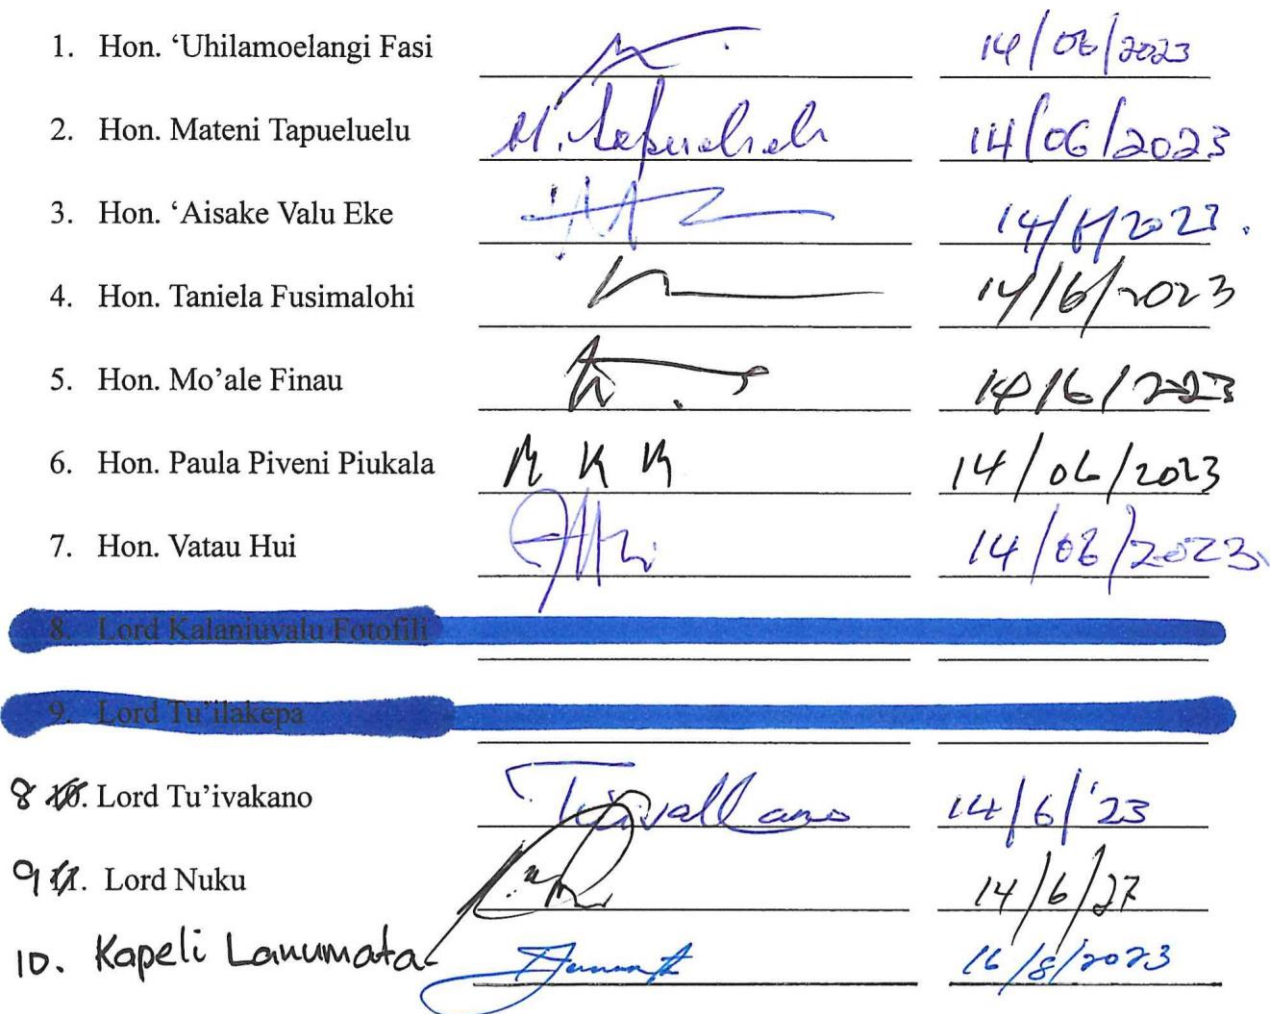 1. Hon. ‘Uhilamoelangi Fasi 14/06/2023
2. Hon. Mateni Tapueluelu M. Tapueluelu 14/06/2023
3. Hon. ‘Aisake Valu Eke 14/6/2023.
4. Hon. Taniela Fusimalohi 14/6/2023
5. Hon. Mo’ale Finau 14/6/2023
6. Hon. Paula Piveni Piukala 14/06/2023
7. Hon. Vatau Hui 14/06/2023
8. Lord Kalaniuvalu Fotofili
9. Lord Tu’ilakepa
8 10. Lord Tu’ivakano Tu'ivakano 14/6/'23
9 11. Lord Nuku 14/6/27
10. Kapeli Lanumata 16/8/2023